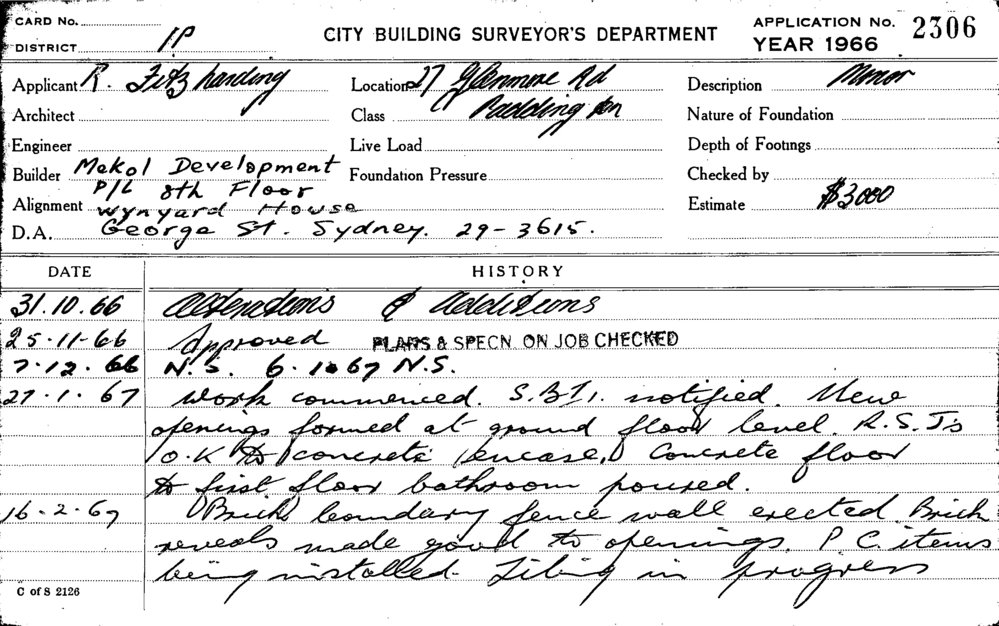 CARD No.
DISTRICT 1P
CITY BUILDING SURVEYOR'S DEPARTMENT
APPLICATION No. 2306
YEAR 1966
Applicant R. Fitzharding
Location 27 Glenmore Rd
Description Minor
Architect
Class Paddington
Nature of Foundation
Engineer
Live Load
Depth of Footings
Builder Mekol Development
Foundation Pressure
Checked by
P/L 8th Floor
Alignment Wynyard House
Estimate $3000
D.A. George St. Sydney. 29-3615.
DATE HISTORY
31.10.66 Alterations & additions
25-11-66 Approved PLANS & SPECN ON JOB CHECKED
7.12.66 N.S. 6.1.67 N.S.
27.1.67 Work commenced. S.B.I. notified. New
openings formed at ground floor level. R.S.J's
O.K to concrete encase. Concrete floor
to first floor bathroom poured.
16-2-67 Brick boundary fence wall erected. Brick
reveals made good to openings. P.C. items
being installed. Tiling in progress
C of S 2126